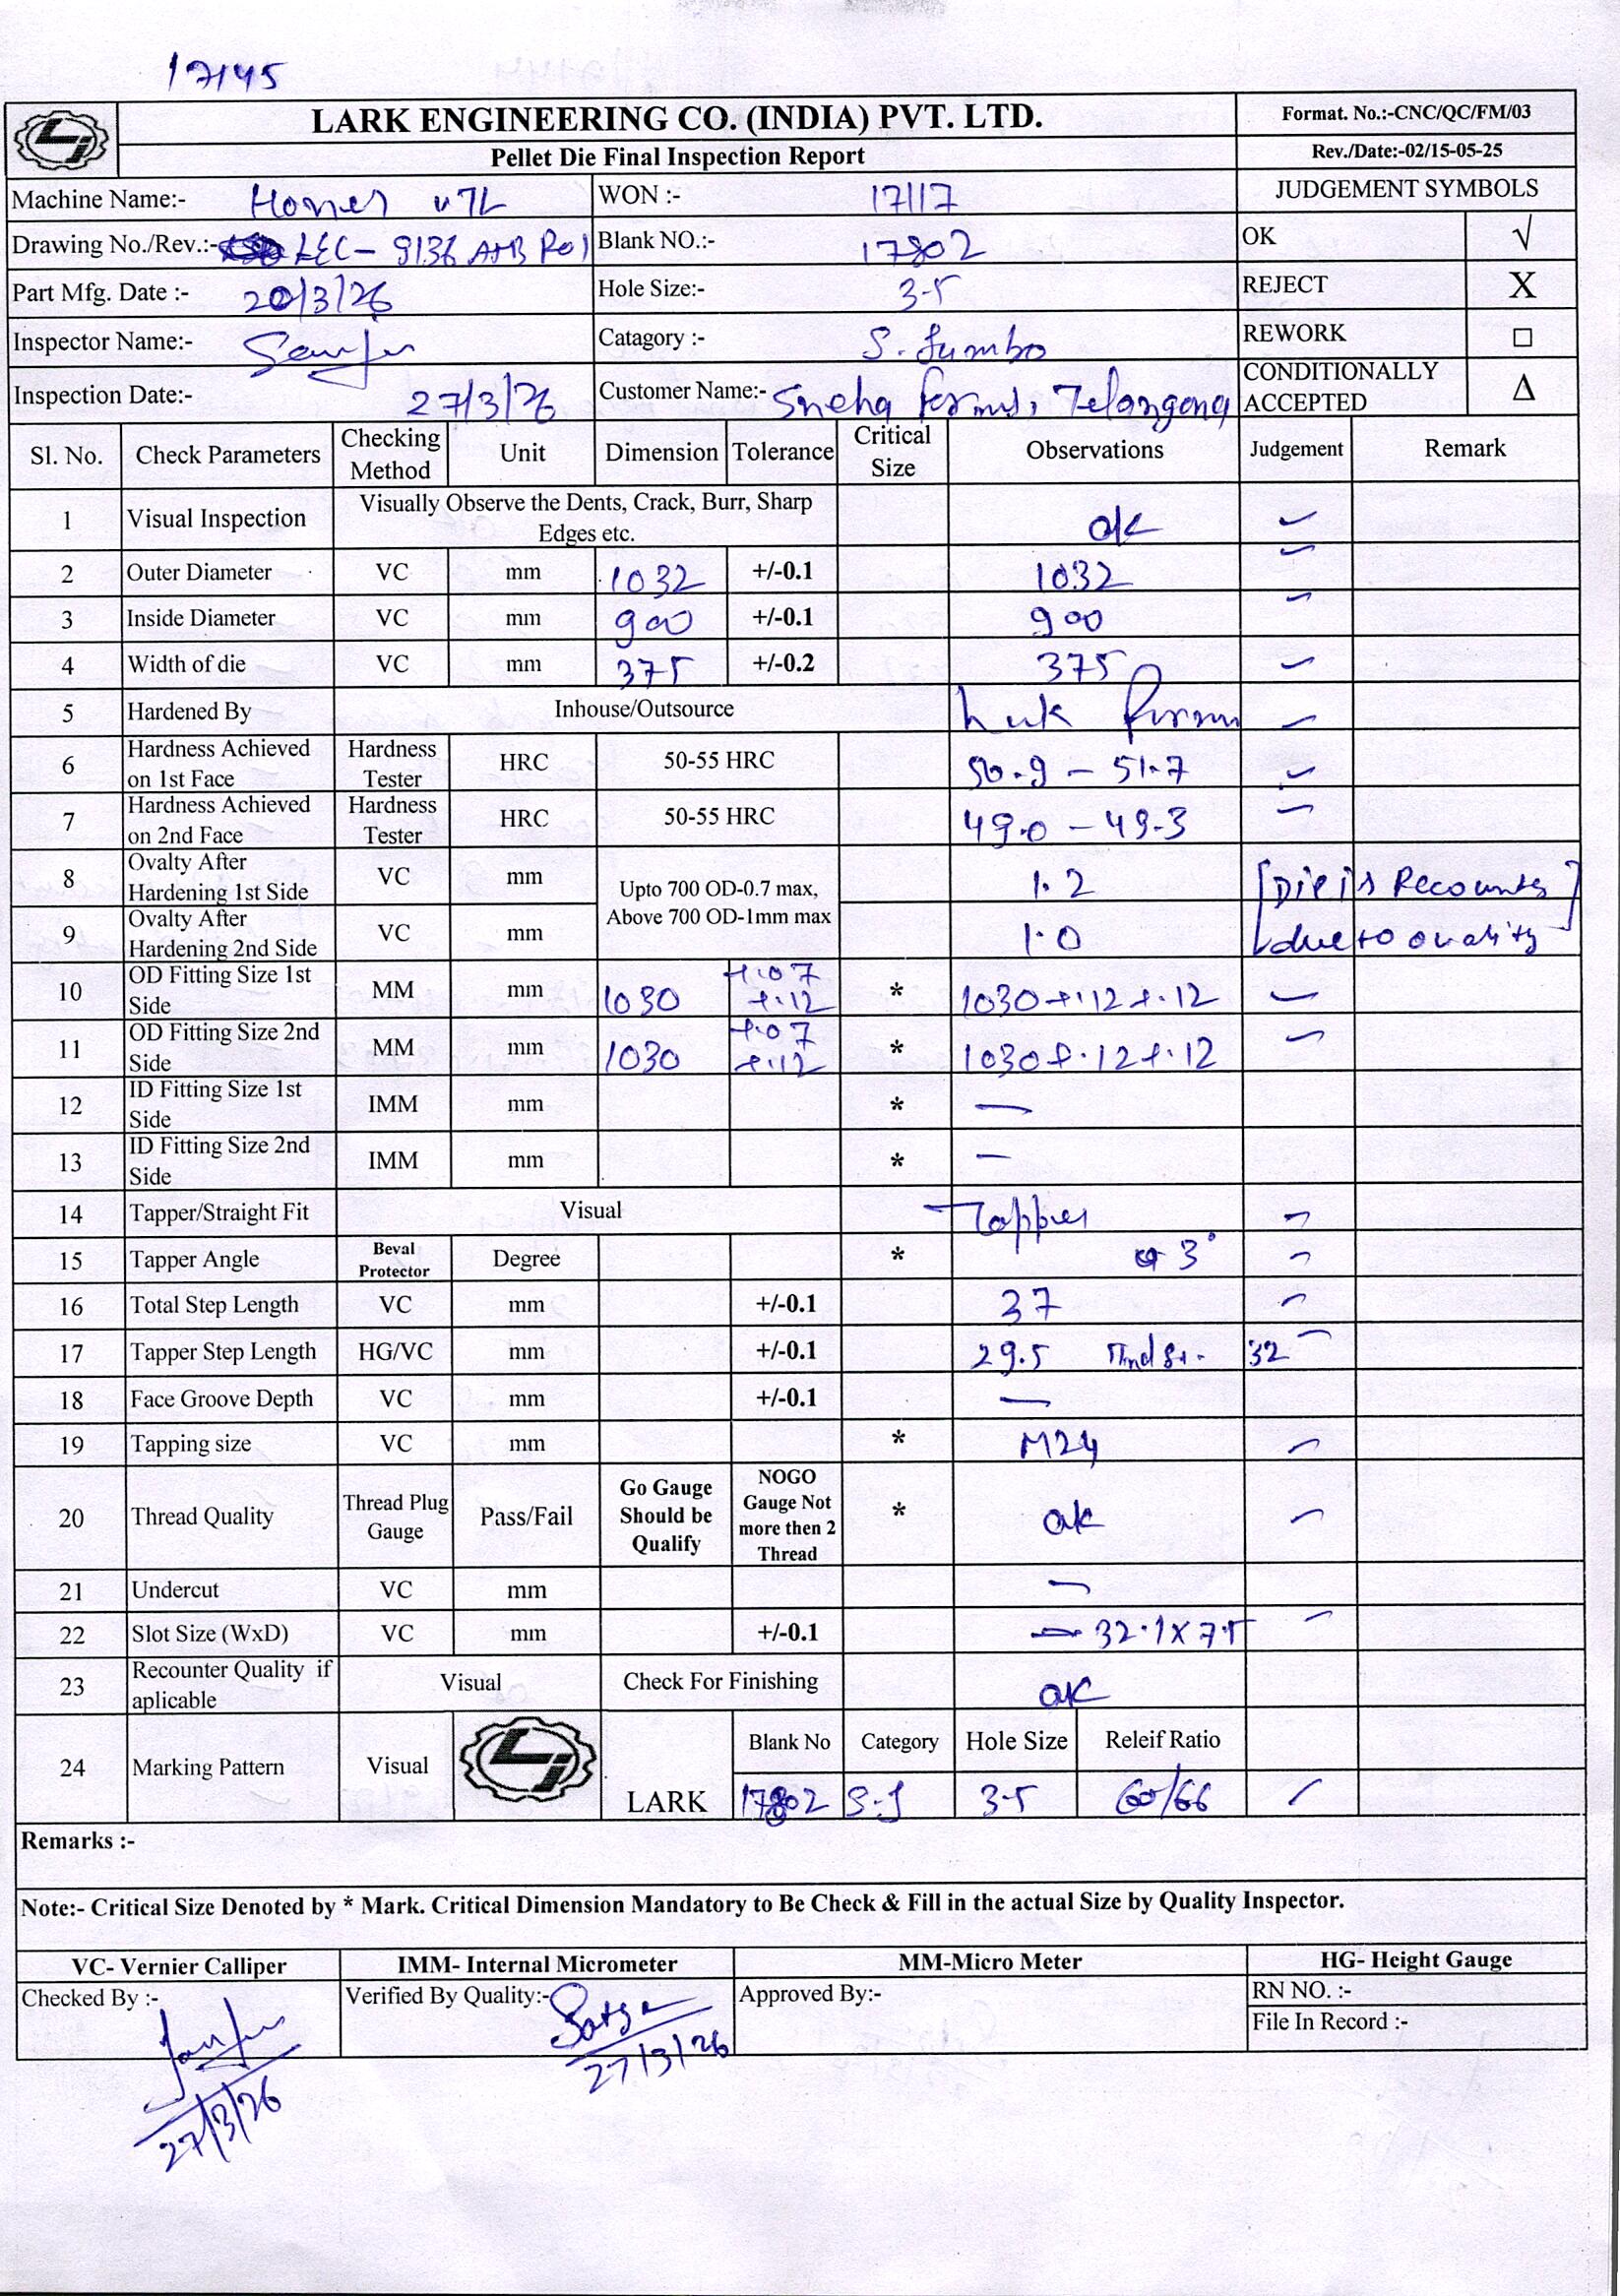 17145
LARK ENGINEERING CO. (INDIA) PVT. LTD.
Format. No.:-CNC/QC/FM/03
Pellet Die Final Inspection Report
Rev./Date:-02/15-05-25
Machine Name:-
WON :- 17117
JUDGEMENT SYMBOLS
Drawing No./Rev.:- LEC- 9136 AHB R01
Blank NO.:- 17802
OK √
Part Mfg. Date :- 20/3/26
Hole Size:- 3.5
REJECT X
Inspector Name:-
Catagory :- S. Jumbo
REWORK □
Inspection Date:- 27/3/26
Customer Name:- Sneha Farms, Telangana
CONDITIONALLY ACCEPTED Δ
Sl. No. Check Parameters Checking Method Unit Dimension Tolerance Critical Size Observations Judgement Remark
1 Visual Inspection Visually Observe the Dents, Crack, Burr, Sharp Edges etc. ok
2 Outer Diameter VC mm 1032 +/-0.1 1032
3 Inside Diameter VC mm 900 +/-0.1 900
4 Width of die VC mm 375 +/-0.2 375
5 Hardened By Inhouse/Outsource
6 Hardness Achieved on 1st Face Hardness Tester HRC 50-55 HRC 50.9 - 51.7
7 Hardness Achieved on 2nd Face Hardness Tester HRC 50-55 HRC 49.0 - 49.3
8 Ovalty After Hardening 1st Side VC mm Upto 700 OD-0.7 max, Above 700 OD-1mm max 1.2 [Die is Recounter
9 Ovalty After Hardening 2nd Side VC mm 1.0 due to ovality]
10 OD Fitting Size 1st Side MM mm 1030 +.07 +.12 * 1030 +.12 +.12
11 OD Fitting Size 2nd Side MM mm 1030 +.07 +.12 * 1030 +.12 +.12
12 ID Fitting Size 1st Side IMM mm * —
13 ID Fitting Size 2nd Side IMM mm * —
14 Tapper/Straight Fit Visual Tapper
15 Tapper Angle Beval Protector Degree * 3°
16 Total Step Length VC mm +/-0.1 37
17 Tapper Step Length HG/VC mm +/-0.1 29.5 32
18 Face Groove Depth VC mm +/-0.1 —
19 Tapping size VC mm * M24
20 Thread Quality Thread Plug Gauge Pass/Fail Go Gauge Should be Qualify NOGO Gauge Not more then 2 Thread * ok
21 Undercut VC mm —
22 Slot Size (WxD) VC mm +/-0.1 32.1 X 7.5
23 Recounter Quality if aplicable Visual Check For Finishing ok
24 Marking Pattern Visual LARK
Blank No Category Hole Size Releif Ratio
17802 S-J 3.5 60/66
Remarks :-
Note:- Critical Size Denoted by * Mark. Critical Dimension Mandatory to Be Check & Fill in the actual Size by Quality Inspector.
VC- Vernier Calliper IMM- Internal Micrometer MM-Micro Meter HG- Height Gauge
Checked By :-
Verified By Quality:-
Approved By:-
RN NO. :-
File In Record :-
27/3/26
27/3/26